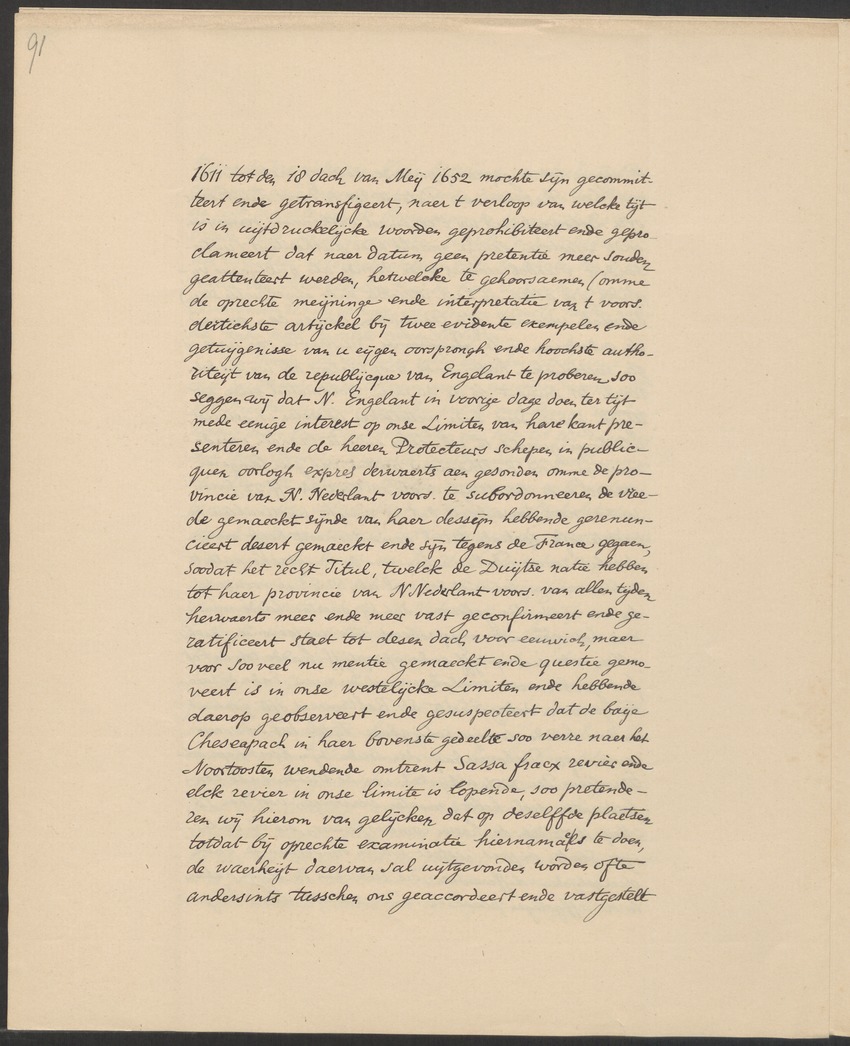 91
1611 tot den 18 dach van Meij 1652 mochte sijn gecommit-
teert ende getransfigeert, naer t verloop van welcke tijt
is in uijtdruckelijcke woorden geprohibiteert ende gepro-
clameert dat naer datum geen pretentie meer souden
geattenteert werden, hetwelcke te gehoorsaemen (omme
de oprechte meijninge ende interpretatie van t voors.
dertichste artijckel bij twee evidente exempelen ende
getuijgenisse van u eijgen oorsprongh ende hoochste autho-
riteijt van de republijcque van Engelant te proberen soo
seggen wij dat N. Engelant in voorije dage doen ter tijt
mede eenige interest op onse Limiten van hare kant pre-
senteren ende de heeren Protecteurs schepen in public-
quen oorlogh expres derwaerts aen gesonden omme de pro-
vincie van N. Nederlant voors. te subordonneeren de vree-
de gemaeckt sijnde van haer desseijn hebbende gerenun-
cieert desert gemaeckt ende sijn tegens de France gegaen,
soodat het recht Titul, twelck de Duijtse natie hebben
tot haer provincie van N Nederlant voors. van allen tyden
herwaerts meer ende meer vast geconfirmeert ende ge-
ratificeert staet tot desen dach voor eeuwich, maer
voor soo veel nu mentie gemaeckt ende questie gemo-
veert is in onse westelijcke Limiten ende hebbende
daerop geobserveert ende gesuspecteert dat de baije
Cheseapach in haer bovenste gedeelte soo verre naer het
Noortoosten wendende omtrent Sassa fracx revier ende
elck revier in onse limite is lopende, soo pretende-
ren wij hierom van gelijcken dat op deselffde plaetsen
totdat bij oprechte examinatie hiernamaels te doen,
de waerheijt daervan sal uijtgevonden worden ofte
andersints tusschen ons geaccordeert ende vastgestelt